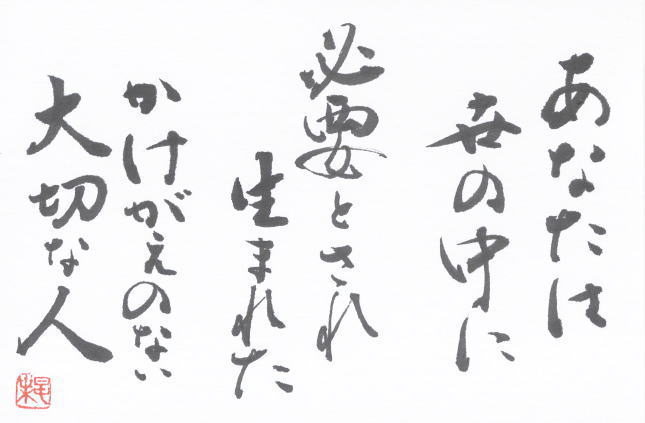 あなたは
世の中に
必要とされ
生まれた
かけがえのない
大切な人